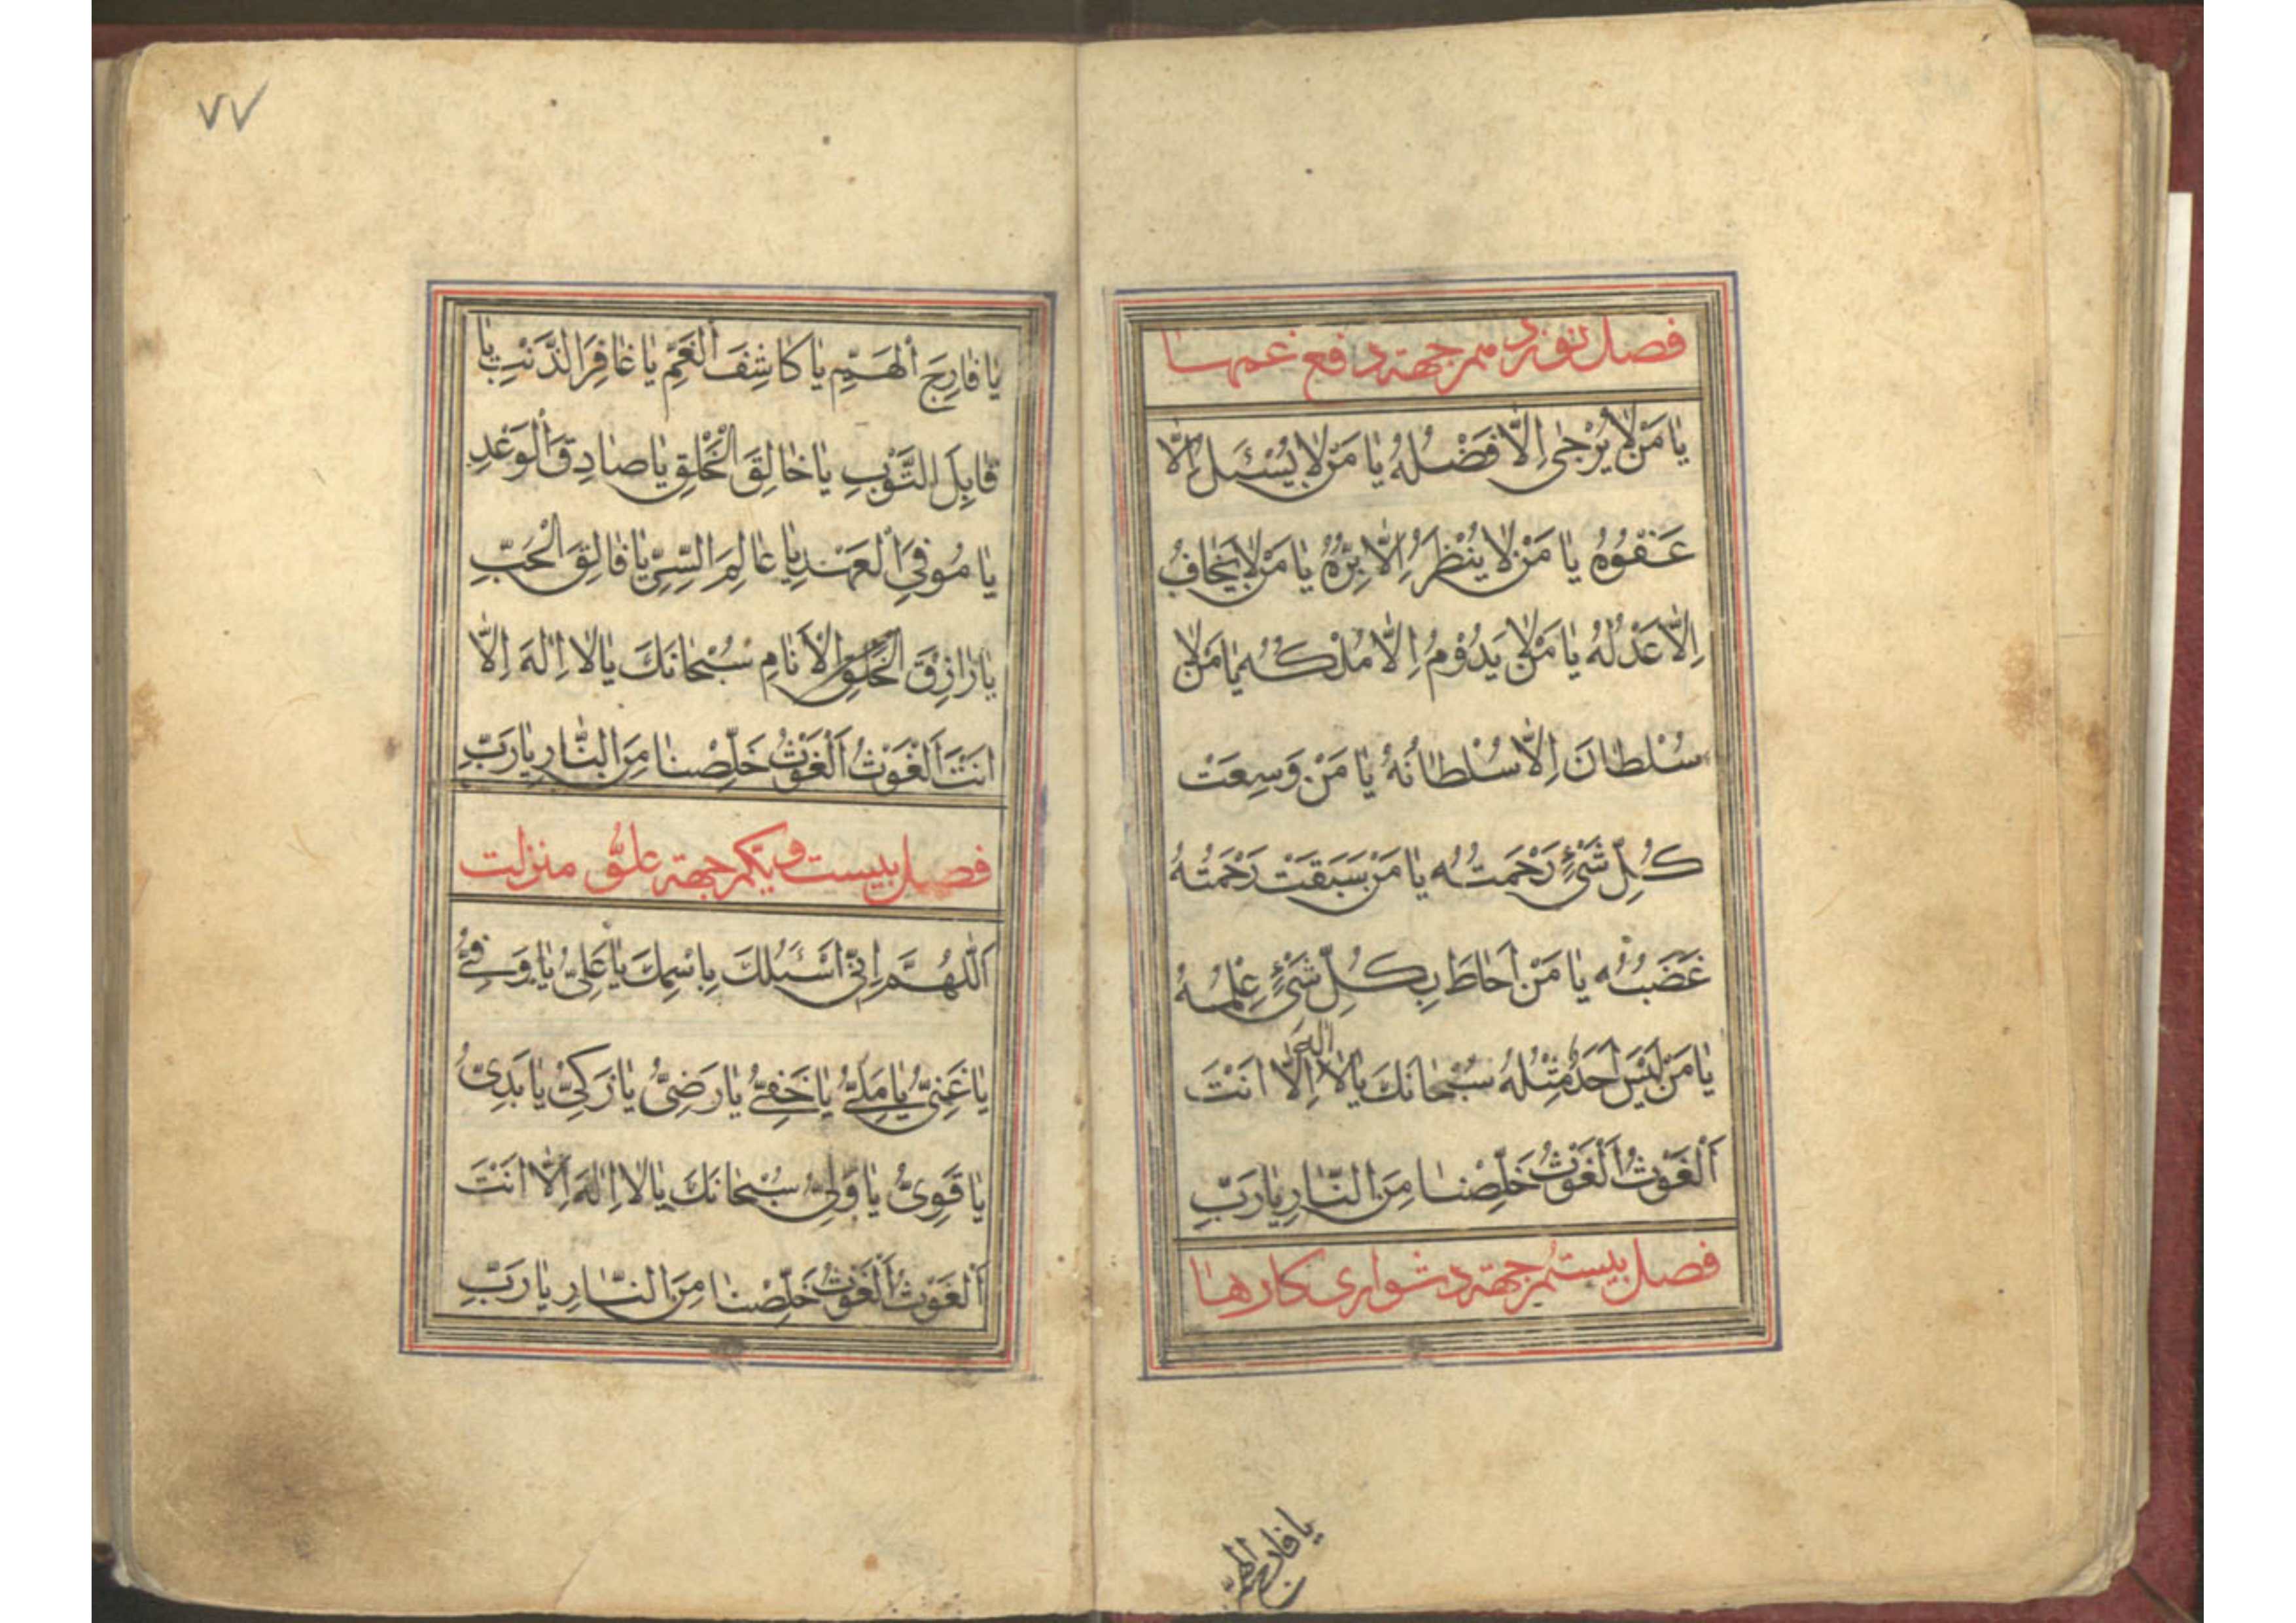 فصل نوزدهم جهة دفع غمها
يٰا مَنْ لٰا يُرْجٰى اِلّٰا فَضْلُهُ يٰا مَنْ لٰا يُسْئَلُ اِلّٰا
عَفْوُهُ يٰا مَنْ لٰا يُنْظَرُ اِلّٰا بِرُّهُ يٰا مَنْ لٰا يُخٰافُ
اِلّٰا عَدْلُهُ يٰا مَنْ لٰا يَدُوْمُ اِلّٰا مُلْكُهُ يٰا مَنْ لٰا
سُلْطٰانَ اِلّٰا سُلْطٰانُهُ يٰا مَنْ وَسِعَتْ
كُلَّ شَىْءٍ رَحْمَتُهُ يٰا مَنْ سَبَقَتْ رَحْمَتُهُ
غَضَبُهُ يٰا مَنْ اَحٰاطَ بِكُلِّ شَىْءٍ عِلْمُهُ
يٰا مَنْ لَيْسَ اَحَدٌ مِثْلُهُ سُبْحٰانَكَ يٰا لٰا اِلٰهَ اِلّٰا اَنْتَ
اَلْغَوْثُ اَلْغَوْثُ خَلِّصْنٰا مِنَ النّٰارِ يٰا رَبِّ
فصل بيستم جهة دشوارى كارها
يا فارج الهمّ
٧٧
يٰا فٰارِجَ الْهَمِّ يٰا كٰاشِفَ الْغَمِّ يٰا غٰافِرَ الذَّنْبِ يٰا
قٰابِلَ التَّوْبِ يٰا خٰالِقَ الْخَلْقِ يٰا صٰادِقَ الْوَعْدِ
يٰا مُوفِىَ الْعَهْدِ يٰا عٰالِمَ السِّرِّ يٰا فٰالِقَ الْحَبِّ
يٰا رٰازِقَ الْخَلْقِ الْاَنٰامِ سُبْحٰانَكَ يٰا لٰا اِلٰهَ اِلّٰا
اَنْتَ اَلْغَوْثُ اَلْغَوْثُ خَلِّصْنٰا مِنَ النّٰارِ يٰا رَبِّ
فصل بيست و يكم جهة علوّ منزلت
اَللّٰهُمَّ اِنّى اَسْئَلُكَ بِاسْمِكَ يٰا عَلِىُّ يٰا وَفِىُّ
يٰا غَنِىُّ يٰا مَلِىُّ يٰا خَفِىُّ يٰا رَضِىُّ يٰا زَكِىُّ يٰا بَدِىُّ
يٰا قَوِىُّ يٰا وَلِىُّ سُبْحٰانَكَ يٰا لٰا اِلٰهَ اِلّٰا اَنْتَ
اَلْغَوْثُ اَلْغَوْثُ خَلِّصْنٰا مِنَ النّٰارِ يٰا رَبِّ